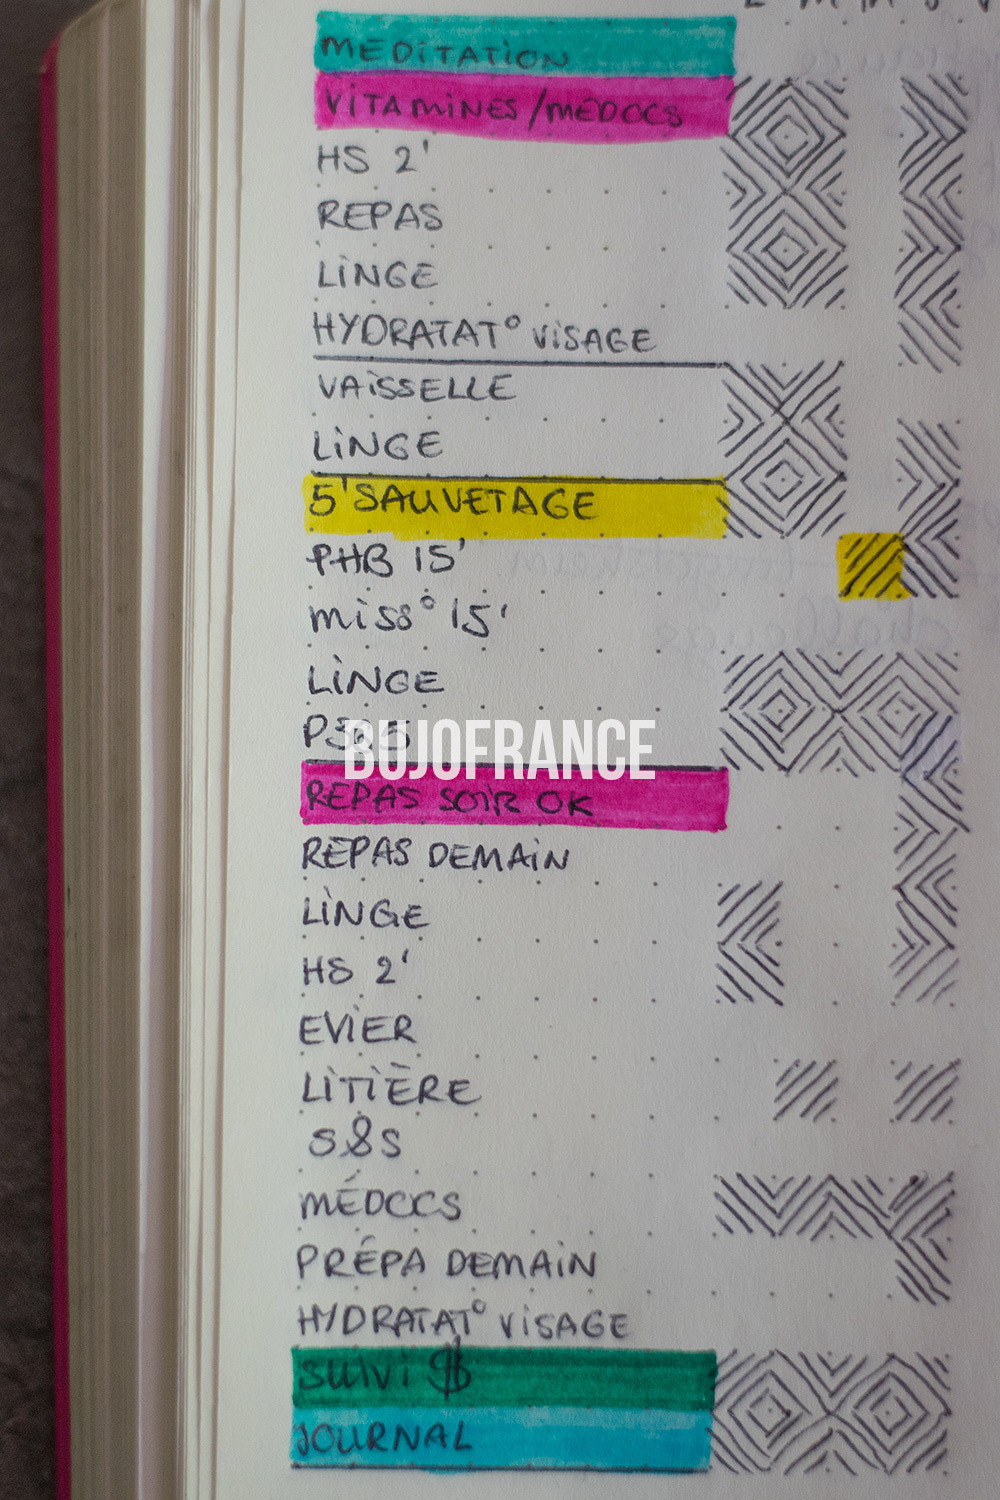 MEDITATION
VITAMINES/MEDOCS
HS 2'
REPAS
LINGE
HYDRATAT° VISAGE
VAISSELLE
LINGE
5' SAUVETAGE
PHB 15'
miss° 15'
LINGE
P365
BUJOFRANCE
REPAS SOIR OK
REPAS DEMAIN
LINGE
HS 2'
EVIER
LITIÈRE
S&S
MÉDOCS
PRÉPA DEMAIN
HYDRATAT° VISAGE
SUIVI $
JOURNAL